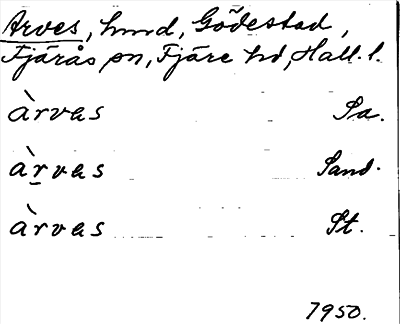 Arves, hmd, Gödestad,
Fjärås sn, Fjäre hd, Hall. l.
àrvas Sa.
àrvas Sand.
àrvas St.
7950.